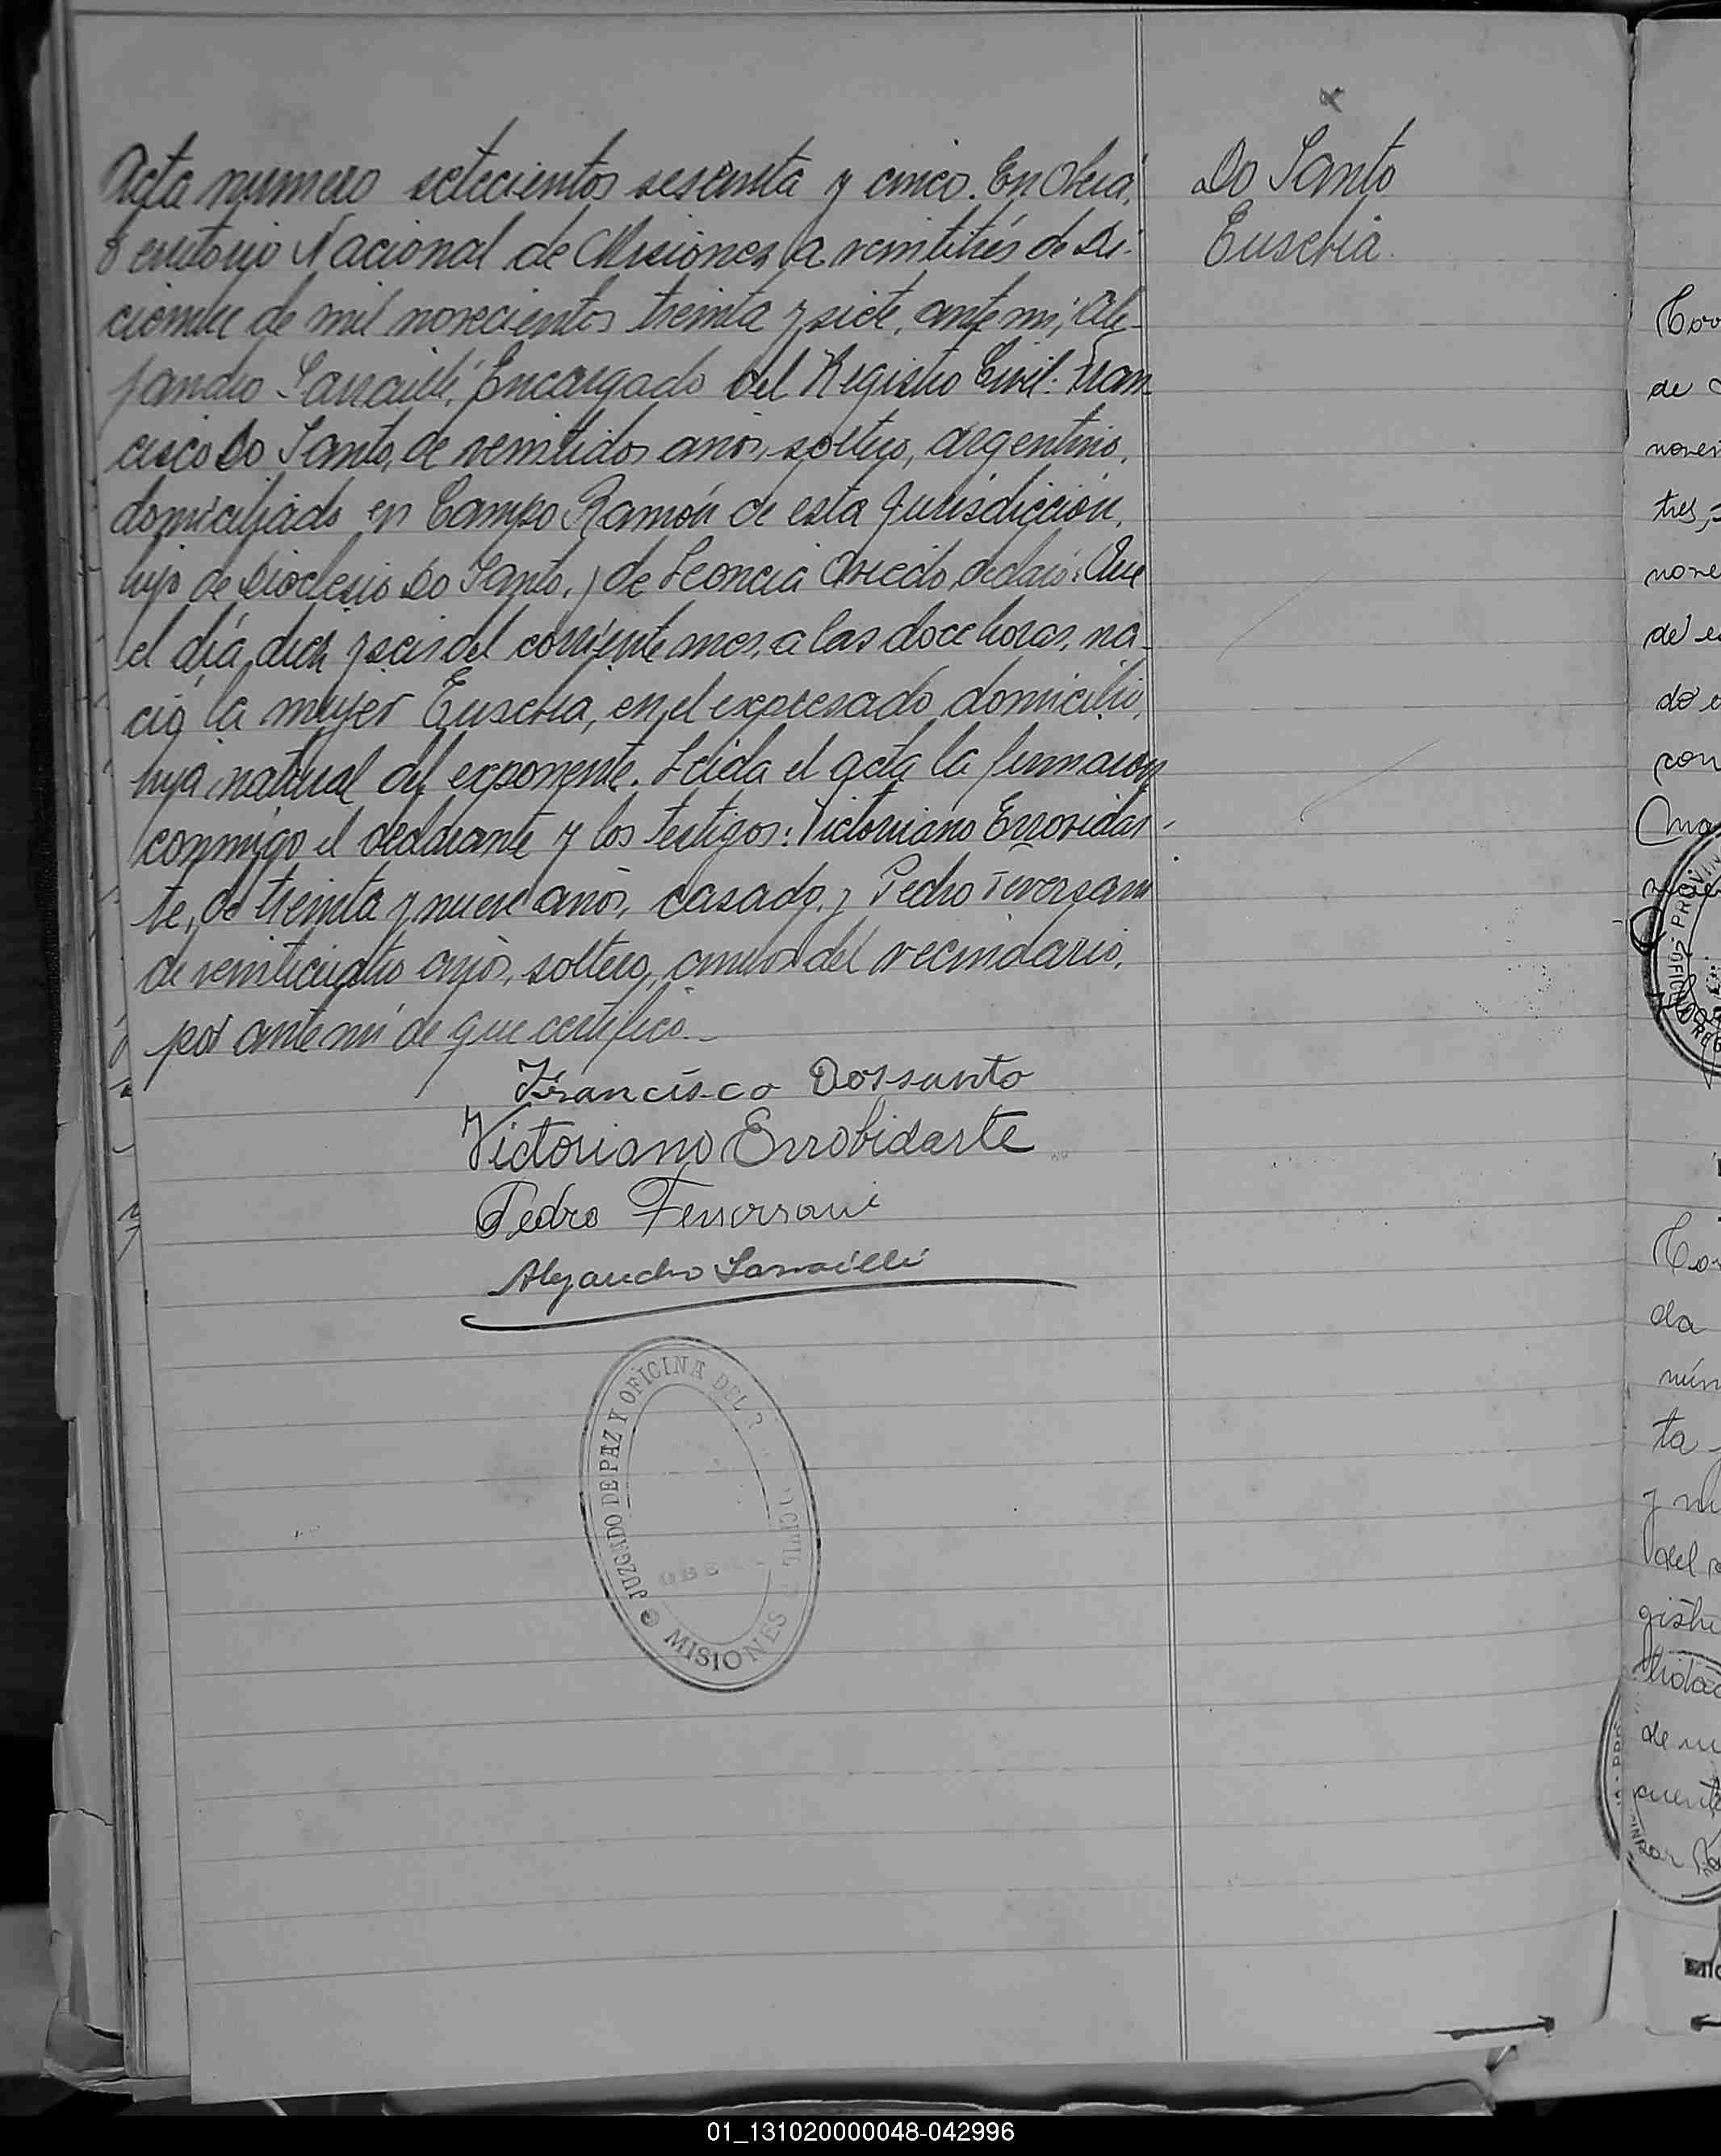 Acta numero setecientos sesenta y cinco. En Oberá,
Territorio Nacional de Misiones, a veintitrés de Di-
ciembre de mil novecientos treinta y siete, ante mi, Ale-
jandro Sarraillé, Encargado del Registro Civil: Fran
cisco Do Santo, de veintidos años, soltero, argentino,
domiciliado en Campo Ramón de esta jurisdicción,
hijo de Dioclesio Do Santo, y de Leoncia Oviedo, declaró: Que
el día diez y seis del corriente mes, a las doce horas, na-
ció la mujer Eusebia, en el expresado domicilio,
hija natural del exponente. Leida el acta la firmaron
conmigo el declarante y los testigos: Victoriano Errovidar-
te, de treinta y nueve años, casado, y Pedro
de veinticuatro años, soltero, ambos del vecindario,
por ante mi de que certifico.
Do Santo
Eusebia.
Francisco Dossanto
Victoriano Errobidarte
Pedro
Alejandro Sarraillé
JUZGADO DE PAZ Y OFICINA DEL CIVIL
MISIONES
de
tres,
ta
del
01_131020000048-042996